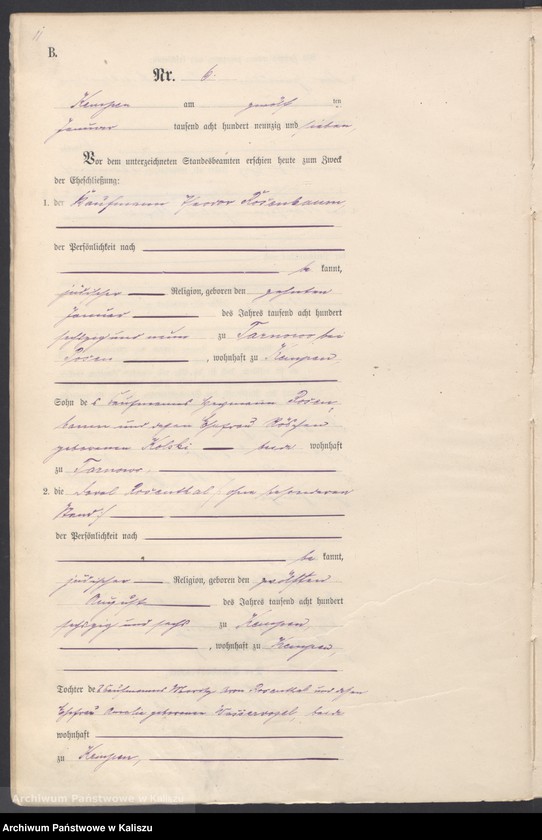 B.
Nr. 6.
Kempen am zwölf ten
Januar tausend acht hundert neunzig und sieben,
Vor dem unterzeichneten Standesbeamten erschien heute zum Zweck
der Eheschließung:
1. der Kaufmann Rosenbaum,
der Persönlichkeit nach
be kannt,
jüdischer Religion, geboren den zehnten
Januar des Jahres tausend acht hundert
sechszig und neun zu Tarnowo bei
Posen, wohnhaft zu Kempen
Sohn des Kaufmanns Heymann Rosen-
baum und dessen Ehefrau Röschen
geborenen Kolski beide wohnhaft
zu Tarnowo,
2. die Rosenthal, ohne besonderen
Stand,
der Persönlichkeit nach
be kannt,
jüdischer Religion, geboren den zwölften
August des Jahres tausend acht hundert
sechszig und sechs zu Kempen
, wohnhaft zu Kempen
Tochter des Kaufmanns Moritz Aron Rosenthal und dessen
Ehefrau Amalie geborenen Wasservogel, beide
wohnhaft
zu Kempen,
Archiwum Państwowe w Kaliszu
Archiwum Państwowe w Kaliszu